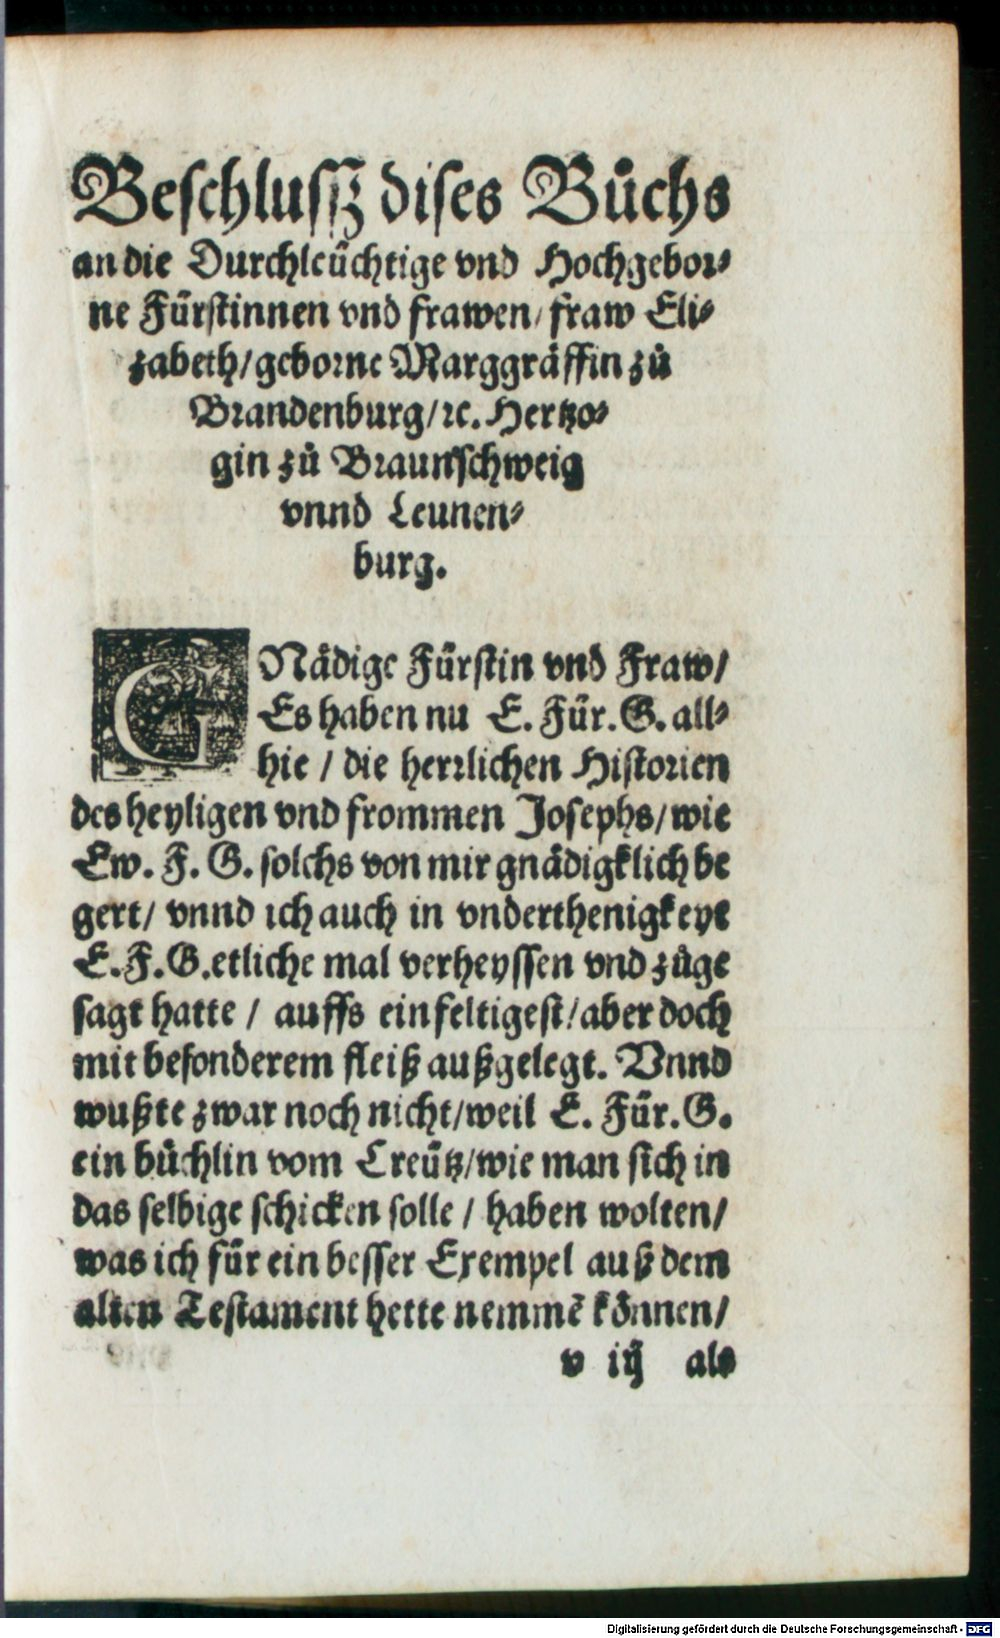 Beschlussz dises Bůchs
an die Durchleüchtige vnd Hochgebor-
ne Fürstinnen vnd frawen/ fraw Eli-
zabeth/ geborne Marggräffin zů
Brandenburg/ ꝛc. Hertzo-
gin zů Braunschweig
vnnd Leunen-
burg.
GNädige Fürstin vnd Fraw/
Es haben nu E. Für. G. all-
hie / die herrlichen Historien
des heyligen vnd frommen Josephs/ wie
Ew. F. G. solchs von mir gnädigklich be
gert/ vnnd ich auch in vnderthenigkeyt
E. F. G. etliche mal verheyssen vnd zůge
sagt hatte / auffs einfeltigest/ aber doch
mit besonderem fleiß außgelegt. Vnnd
wußte zwar noch nicht/ weil E. Für. G.
ein büchlin vom Creütz/ wie man sich in
das selbige schicken solle / haben wolten/
was ich für ein besser Exempel auß dem
alten Testament hette nemmē können/
v iij als
Digitalisierung gefördert durch die Deutsche Forschungsgemeinschaft - DFG